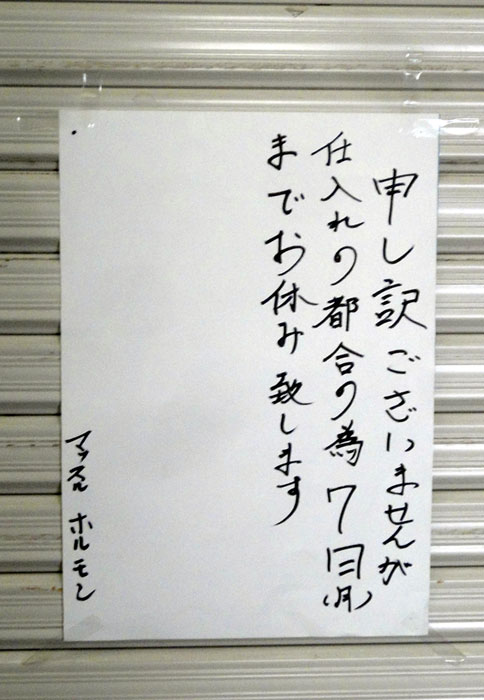 申し訳ございませんが
仕入れの都合の為7日(月)
までお休み致します
マッスル ホルモン